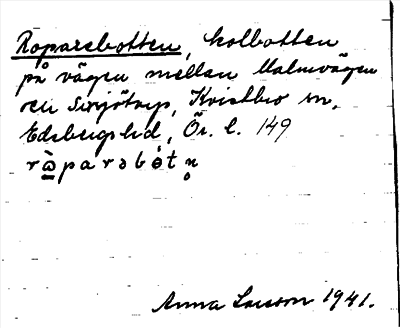 Roparebotten, kolbotten
på vägen mellan Malmvägen
och Sirsjötorp, Kvistbro sn,
Edsbergs hd, Ör. l. 149
Anna Larsson 1941.